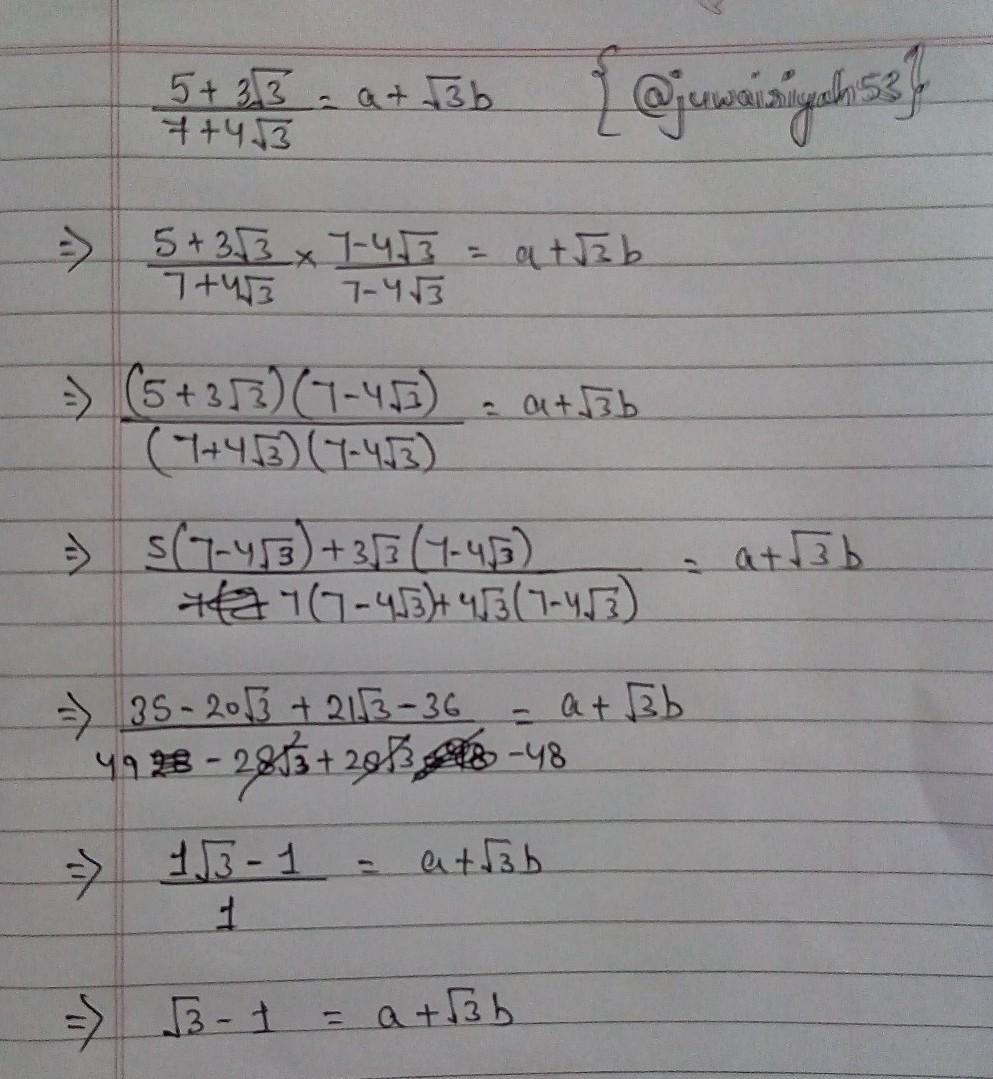 5 + 3√3 / 7 + 4√3 = a + √3b {@juwairiyah53}
⇒ 5 + 3√3 / 7 + 4√3 × 7 - 4√3 / 7 - 4√3 = a + √3b
⇒ (5 + 3√3)(7 - 4√3) / (7 + 4√3)(7 - 4√3) = a + √3b
⇒ 5(7 - 4√3) + 3√3(7 - 4√3) / 7(7 - 4√3) + 4√3(7 - 4√3) = a + √3b
⇒ 35 - 20√3 + 21√3 - 36 / 49 - 28√3 + 28√3 - 48 = a + √3b
⇒ 1√3 - 1 / 1 = a + √3b
⇒ √3 - 1 = a + √3b